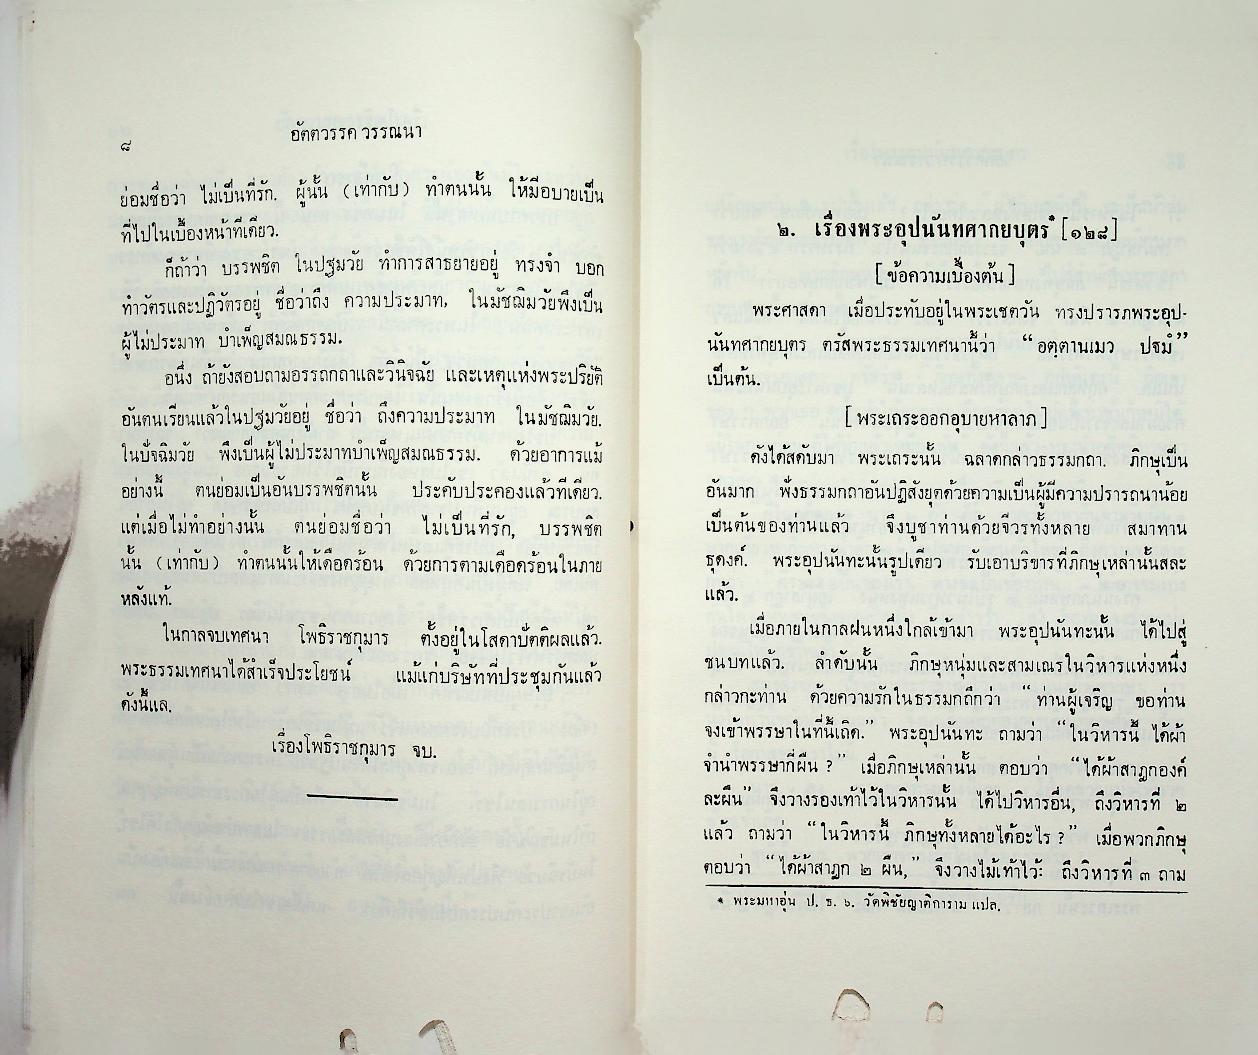 อัตตวรรค วรรณนา
๘
ย่อมชื่อว่า ไม่เป็นที่รัก. ผู้นั้น (เท่ากับ) ทำตนนั้น ให้มีอบายเป็น
ที่ไปในเบื้องหน้าทีเดียว.
ก็ถ้าว่า บรรพชิต ในปฐมวัย ทำการสาธยายอยู่ ทรงจำ บอก
ทำวัตรและปฏิวัตรอยู่ ชื่อว่าถึง ความประมาท, ในมัชฌิมวัยพึงเป็น
ผู้ไม่ประมาท บำเพ็ญสมณธรรม.
อนึ่ง ถ้ายังสอบถามอรรถกถาและวินิจฉัย และเหตุแห่งพระปริยัติ
อันตนเรียนแล้วในปฐมวัยอยู่ ชื่อว่า ถึงความประมาท ในมัชฌิมวัย.
ในปัจฉิมวัย พึงเป็นผู้ไม่ประมาทบำเพ็ญสมณธรรม. ด้วยอาการแม้
อย่างนี้ ตนย่อมเป็นอันบรรพชิตนั้น ประคับประคองแล้วทีเดียว.
แต่เมื่อไม่ทำอย่างนั้น ตนย่อมชื่อว่า ไม่เป็นที่รัก, บรรพชิต
นั้น (เท่ากับ) ทำตนนั้นให้เดือดร้อน ด้วยการตามเดือดร้อนในภาย
หลังแท้.
ในกาลจบเทศนา โพธิราชกุมาร ตั้งอยู่ในโสดาปัตติผลแล้ว.
พระธรรมเทศนาได้สำเร็จประโยชน์ แม้แก่บริษัทที่ประชุมกันแล้ว
ดังนี้แล.
เรื่องโพธิราชกุมาร จบ.
๒. เรื่องพระอุปนันทศากยบุตร* [๑๒๘]
[ข้อความเบื้องต้น]
พระศาสดา เมื่อประทับอยู่ในพระเชตวัน ทรงปรารภพระอุป-
นันทศากยบุตร ตรัสพระธรรมเทศนานี้ว่า "อตฺตานเมว ปฐมํ"
เป็นต้น.
[พระเถระออกอุบายหาลาภ]
ดังได้สดับมา พระเถระนั้น ฉลาดกล่าวธรรมกถา. ภิกษุเป็น
อันมาก ฟังธรรมกถาอันปฏิสังยุตด้วยความเป็นผู้มีความปรารถนาน้อย
เป็นต้นของท่านแล้ว จึงบูชาท่านด้วยจีวรทั้งหลาย สมาทาน
ธุดงค์. พระอุปนันทะนั้นรูปเดียว รับเอาบริขารที่ภิกษุเหล่านั้นสละ
แล้ว.
เมื่อภายในกาลฝนหนึ่งใกล้เข้ามา พระอุปนันทะนั้น ได้ไปสู่
ชนบทแล้ว. ลำดับนั้น ภิกษุหนุ่มและสามเณรในวิหารแห่งหนึ่ง
กล่าวกะท่าน ด้วยความรักในธรรมกถึกว่า "ท่านผู้เจริญ ขอท่าน
จงเข้าพรรษาในที่นี้เถิด." พระอุปนันทะ ถามว่า "ในวิหารนี้ ได้ผ้า
จำนำพรรษากี่ผืน ?" เมื่อภิกษุเหล่านั้น ตอบว่า "ได้ผ้าสาฎกองค์
ละผืน" จึงวางรองเท้าไว้ในวิหารนั้น ได้ไปวิหารอื่น, ถึงวิหารที่ ๒
แล้ว ถามว่า "ในวิหารนี้ ภิกษุทั้งหลายได้อะไร ?" เมื่อพวกภิกษุ
ตอบว่า "ได้ผ้าสาฎก ๒ ผืน," จึงวางไม้เท้าไว้: ถึงวิหารที่ ๓ ถาม
* พระมหาอุ่น ป. ธ. ๖. วัดพิชัยญาติการาม แปล.